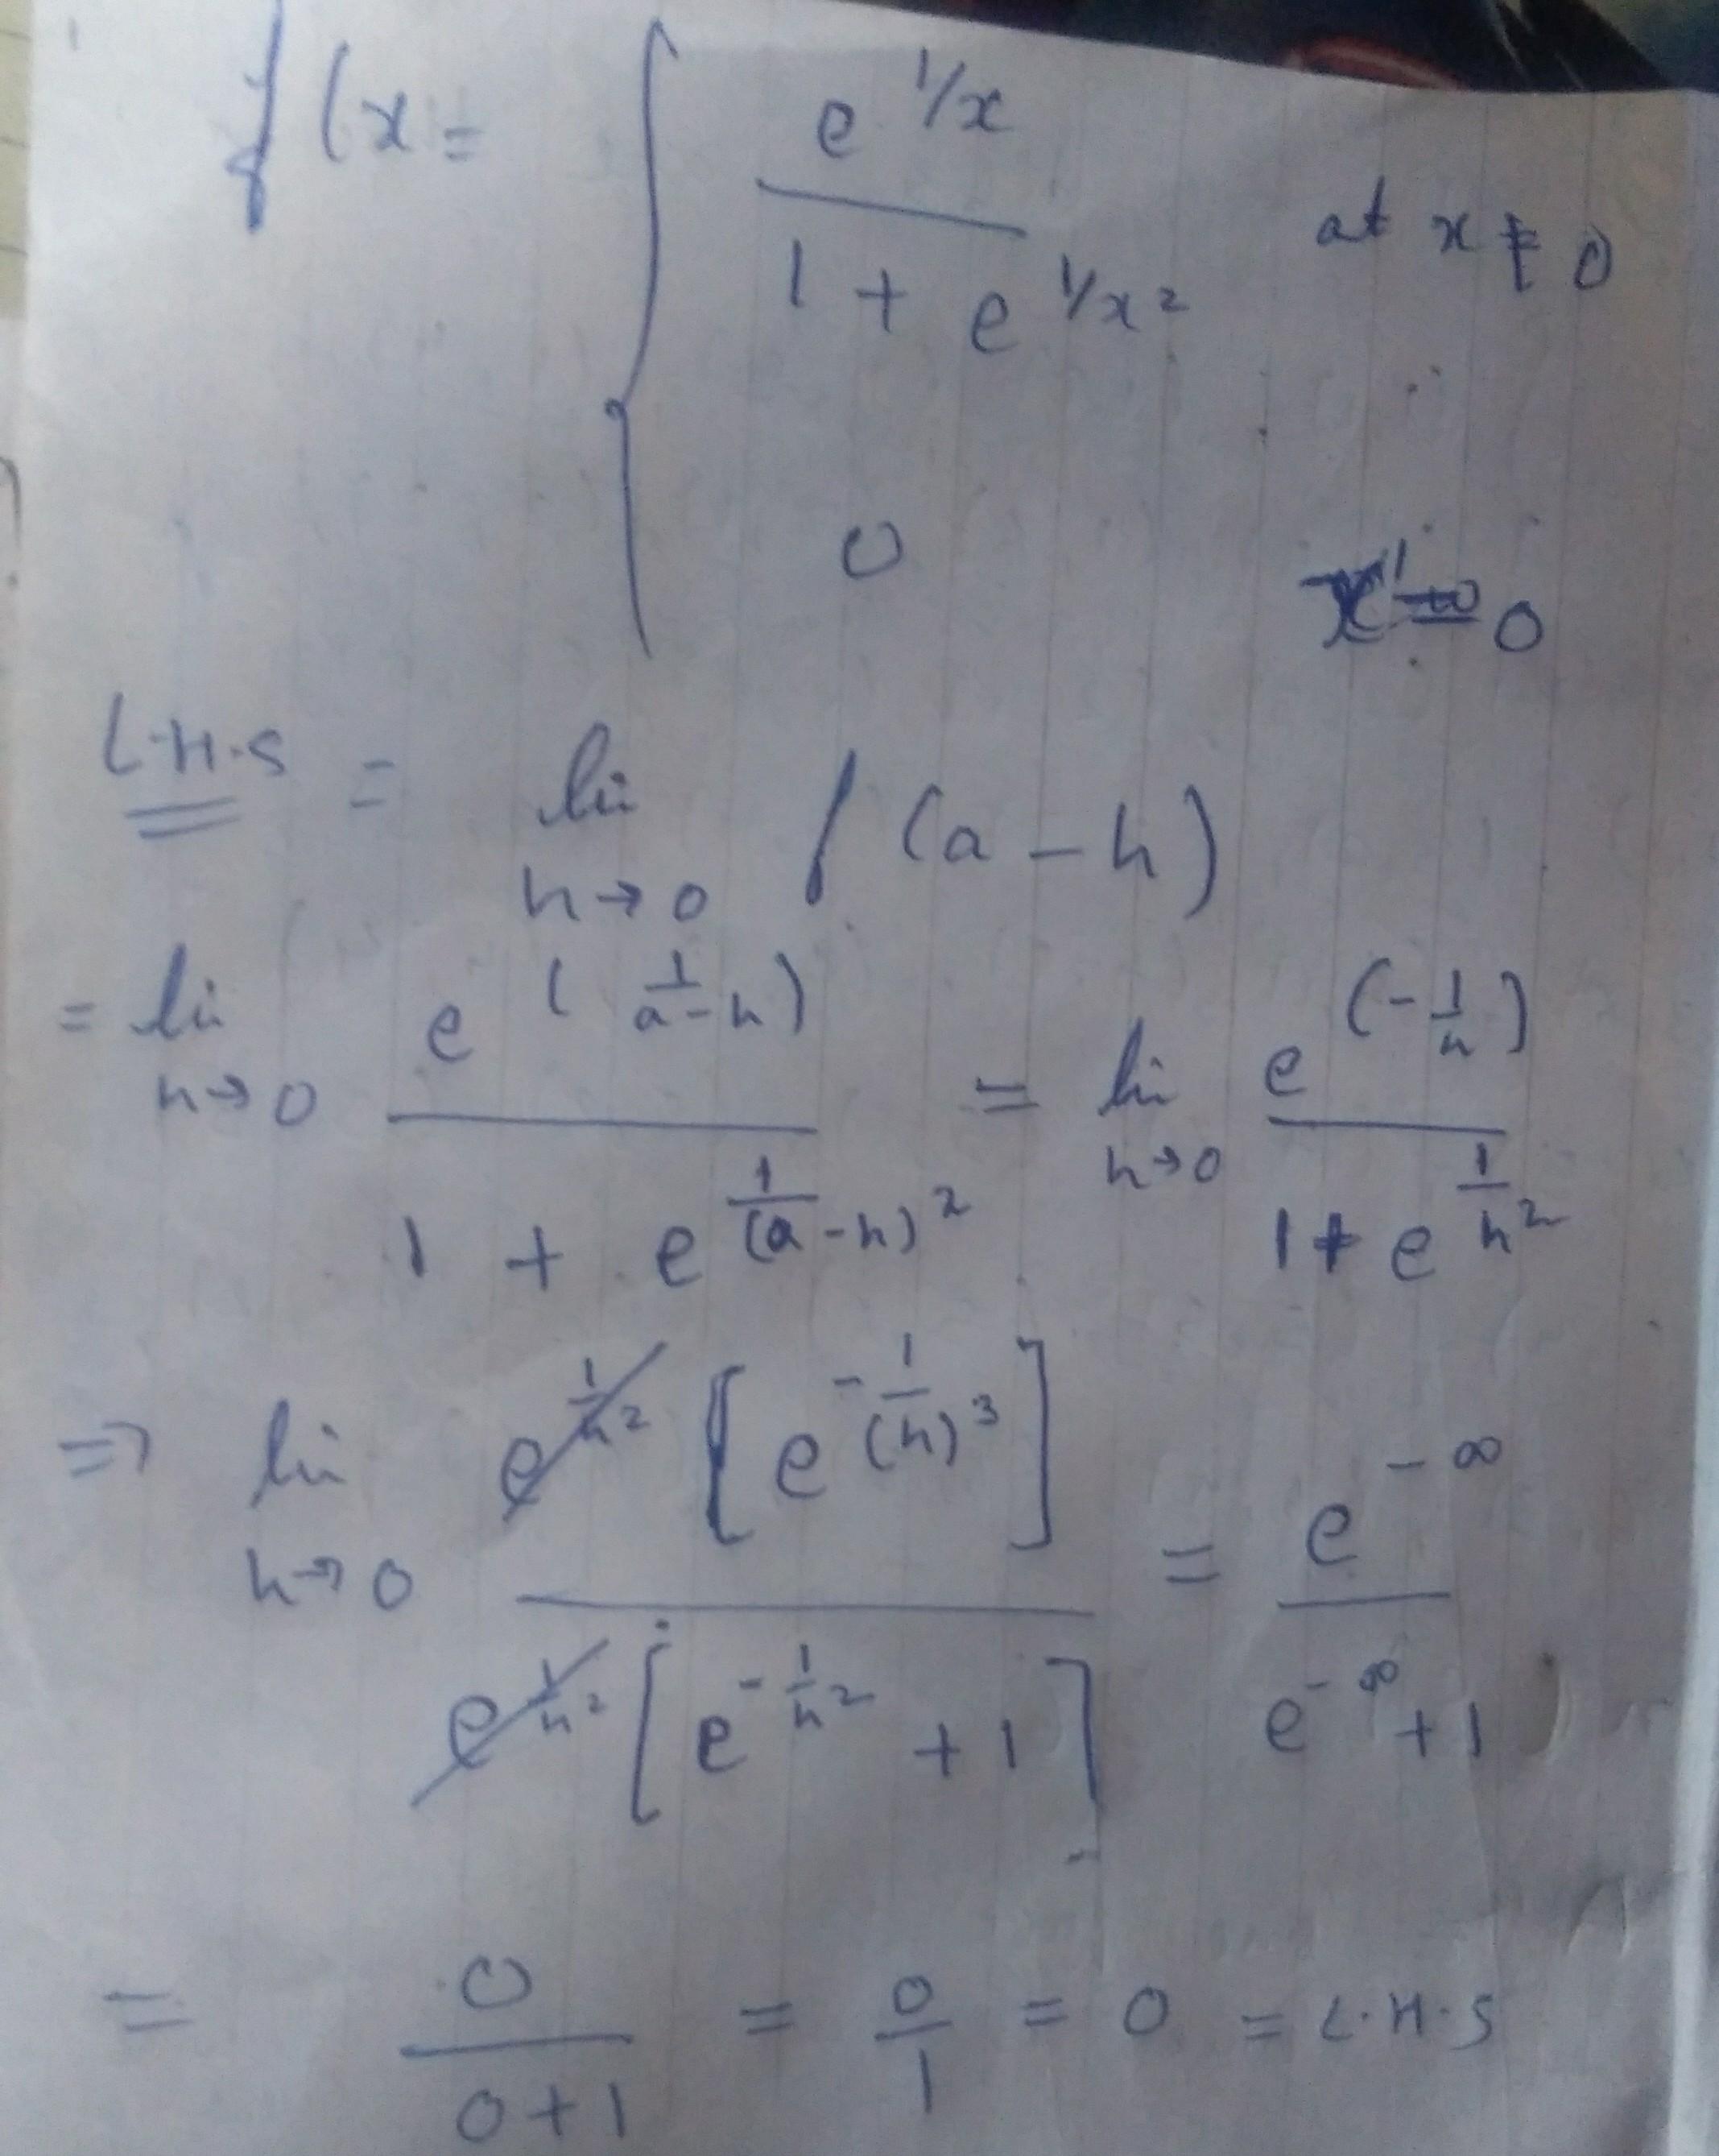 f(x = { e^{1/x} / 1 + e^{1/x^2} at x ≠ 0
0 x = 0
L.H.S = li h→0 f(a - h)
= li h→0 e^{(1/a-h)} / 1 + e^{1/(a-h)^2} = li h→0 e^{(-1/h)} / 1 + e^{1/h^2}
⇒ li h→0 e^{1/h^2} [e^{-1/(h)^3}] / e^{1/h^2} [e^{-1/h^2} + 1] = e^{-∞} / e^{-∞} + 1
= 0 / 0+1 = 0/1 = 0 = L.H.S